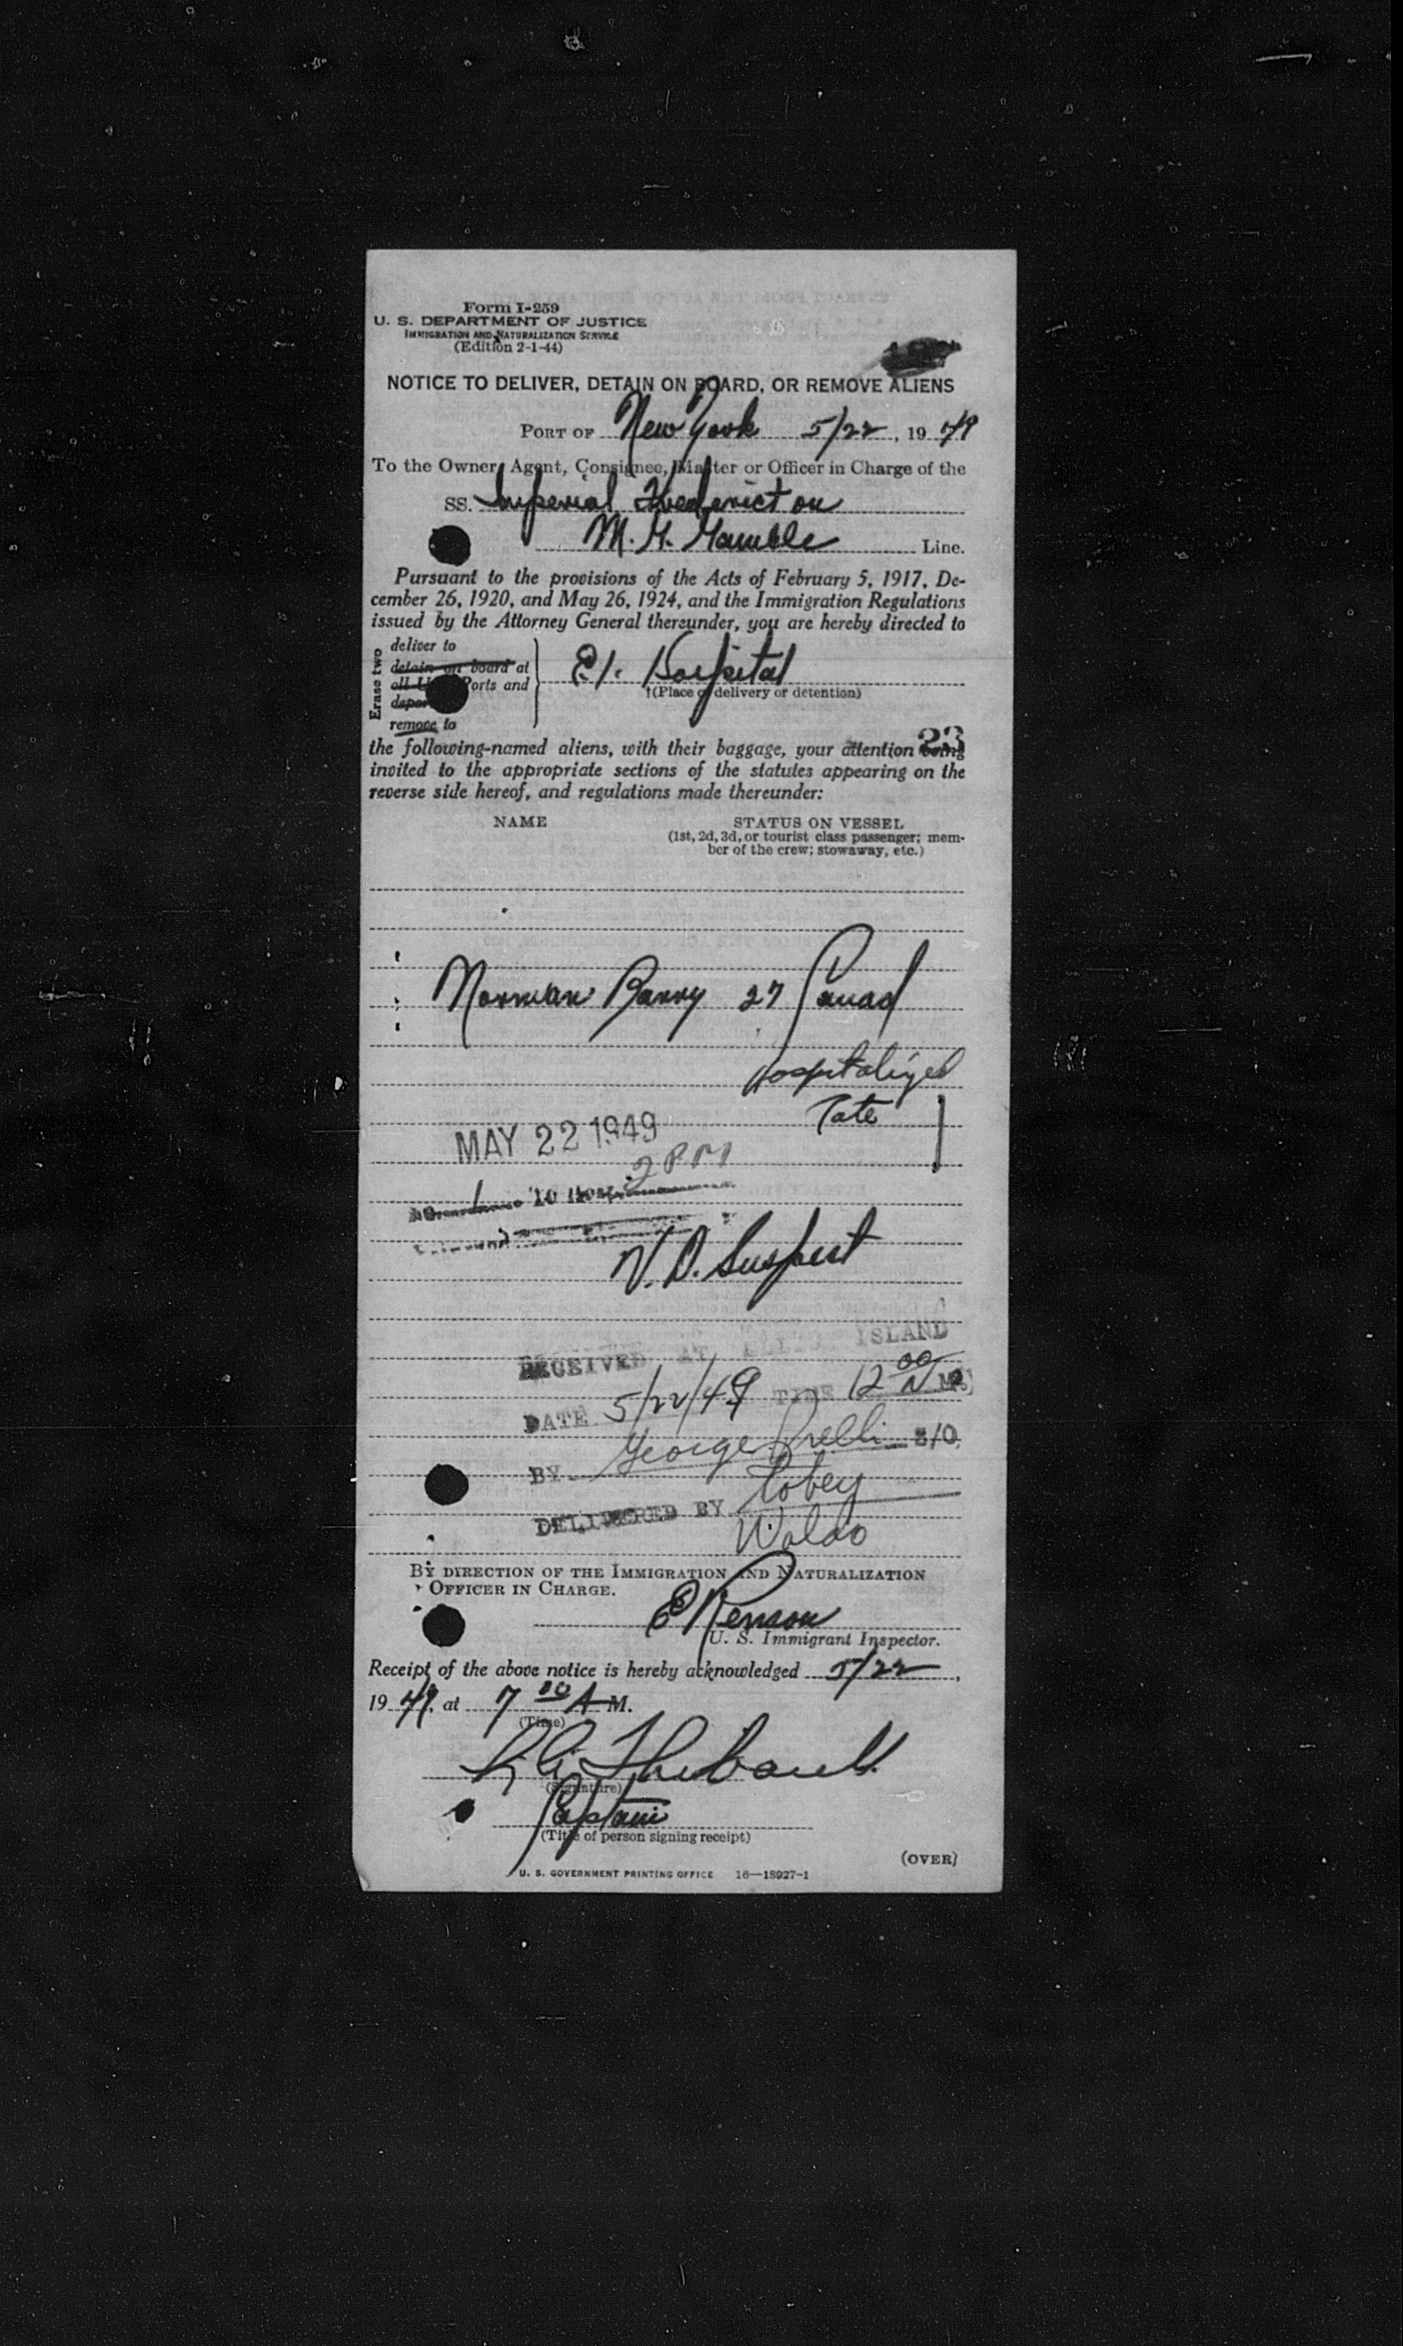 Form I-259
U. S. DEPARTMENT OF JUSTICE
IMMIGRATION AND NATURALIZATION SERVICE
(Edition 2-1-44)
NOTICE TO DELIVER, DETAIN ON BOARD, OR REMOVE ALIENS
PORT OF New York 5/22, 19 49
To the Owner, Agent, Consignee, Master or Officer in Charge of the
SS. Imperial Fredericton
M. G. Gamble Line.
Pursuant to the provisions of the Acts of February 5, 1917, De-
cember 26, 1920, and May 26, 1924, and the Immigration Regulations
issued by the Attorney General thereunder, you are hereby directed to
Erase two
deliver to
detain on board at
all U Ports and
depor
remove to
E.I. Hospital
†(Place of delivery or detention)
23
the following-named aliens, with their baggage, your attention being
invited to the appropriate sections of the statutes appearing on the
reverse side hereof, and regulations made thereunder:
NAME STATUS ON VESSEL
(1st, 2d, 3d, or tourist class passenger; mem-
ber of the crew; stowaway, etc.)
Norman Barry 27 Canad
Hospitalized
Tate
MAY 22 1949
2 PM
V. D. Suspect
RECEIVED AT ELLIS ISLAND
DATE 5/22/49 TIME 12 00 N M.
BY George
DELIVERED BY Cobey
Waldo
BY DIRECTION OF THE IMMIGRATION AND NATURALIZATION
OFFICER IN CHARGE.
E Renson
U. S. Immigrant Inspector.
Receipt of the above notice is hereby acknowledged 5/22,
19 49, at 7 00 A M.
(Time)
Thibault
(Signature)
Captain
(Title of person signing receipt)
(OVER)
U. S. GOVERNMENT PRINTING OFFICE 16—18927-1